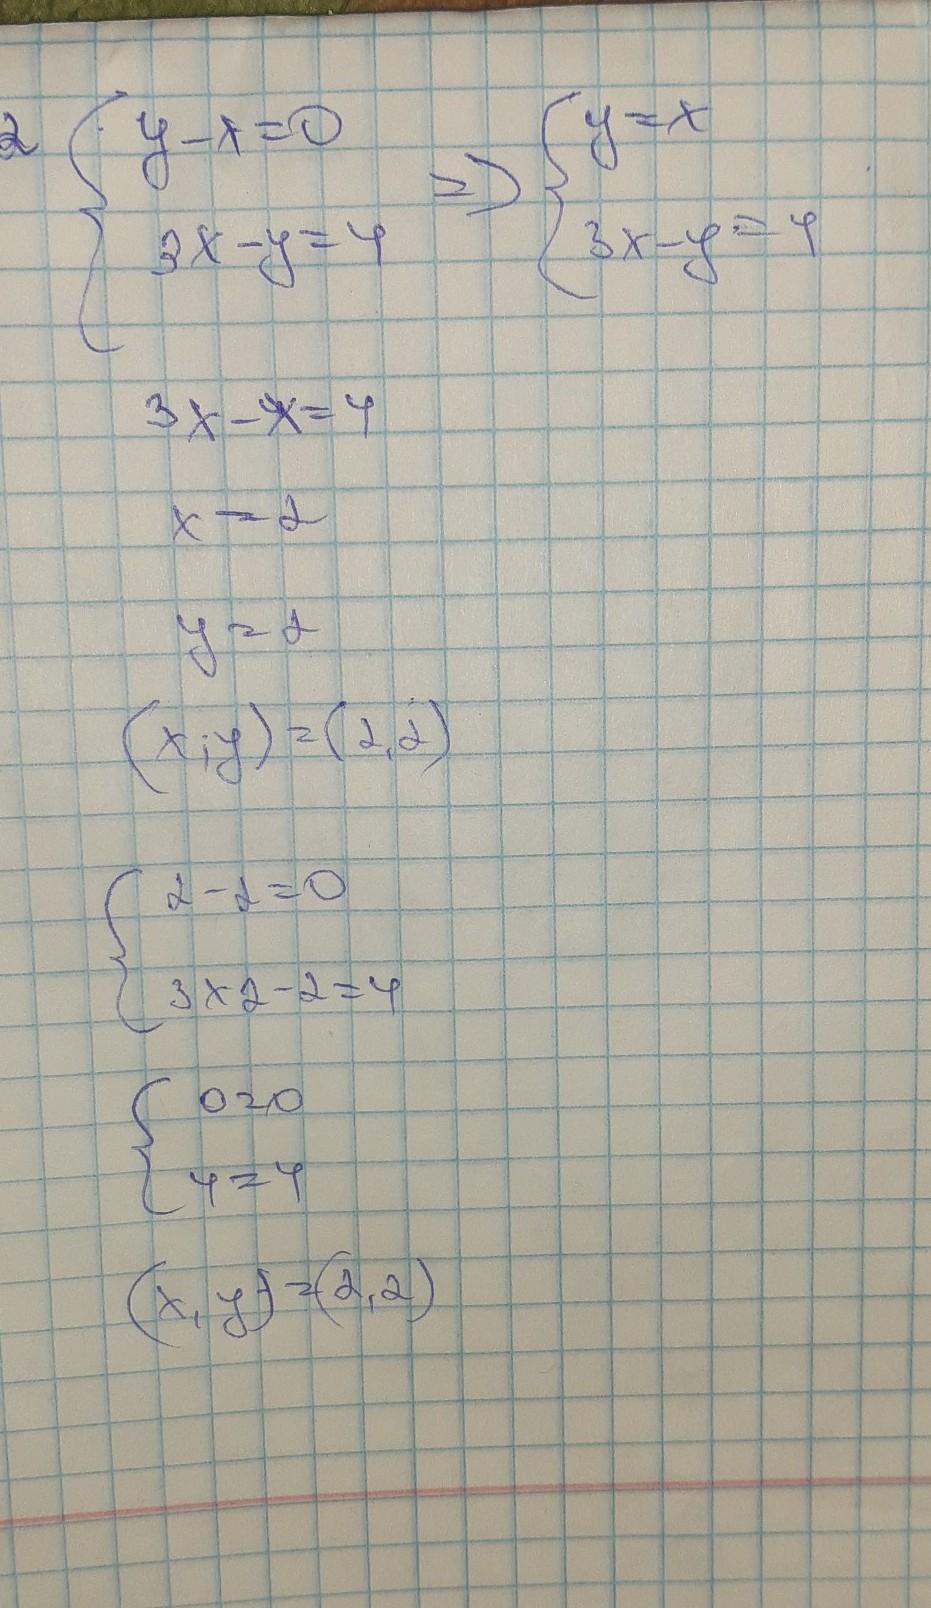 2 { y-x=0 => { y=x
3x-y=4 3x-y=4
3x-x=4
x=2
y=2
(x;y)=(2,2)
{ 2-2=0
3x2-2=4
{ 0=0
4=4
(x,y)=(2,2)